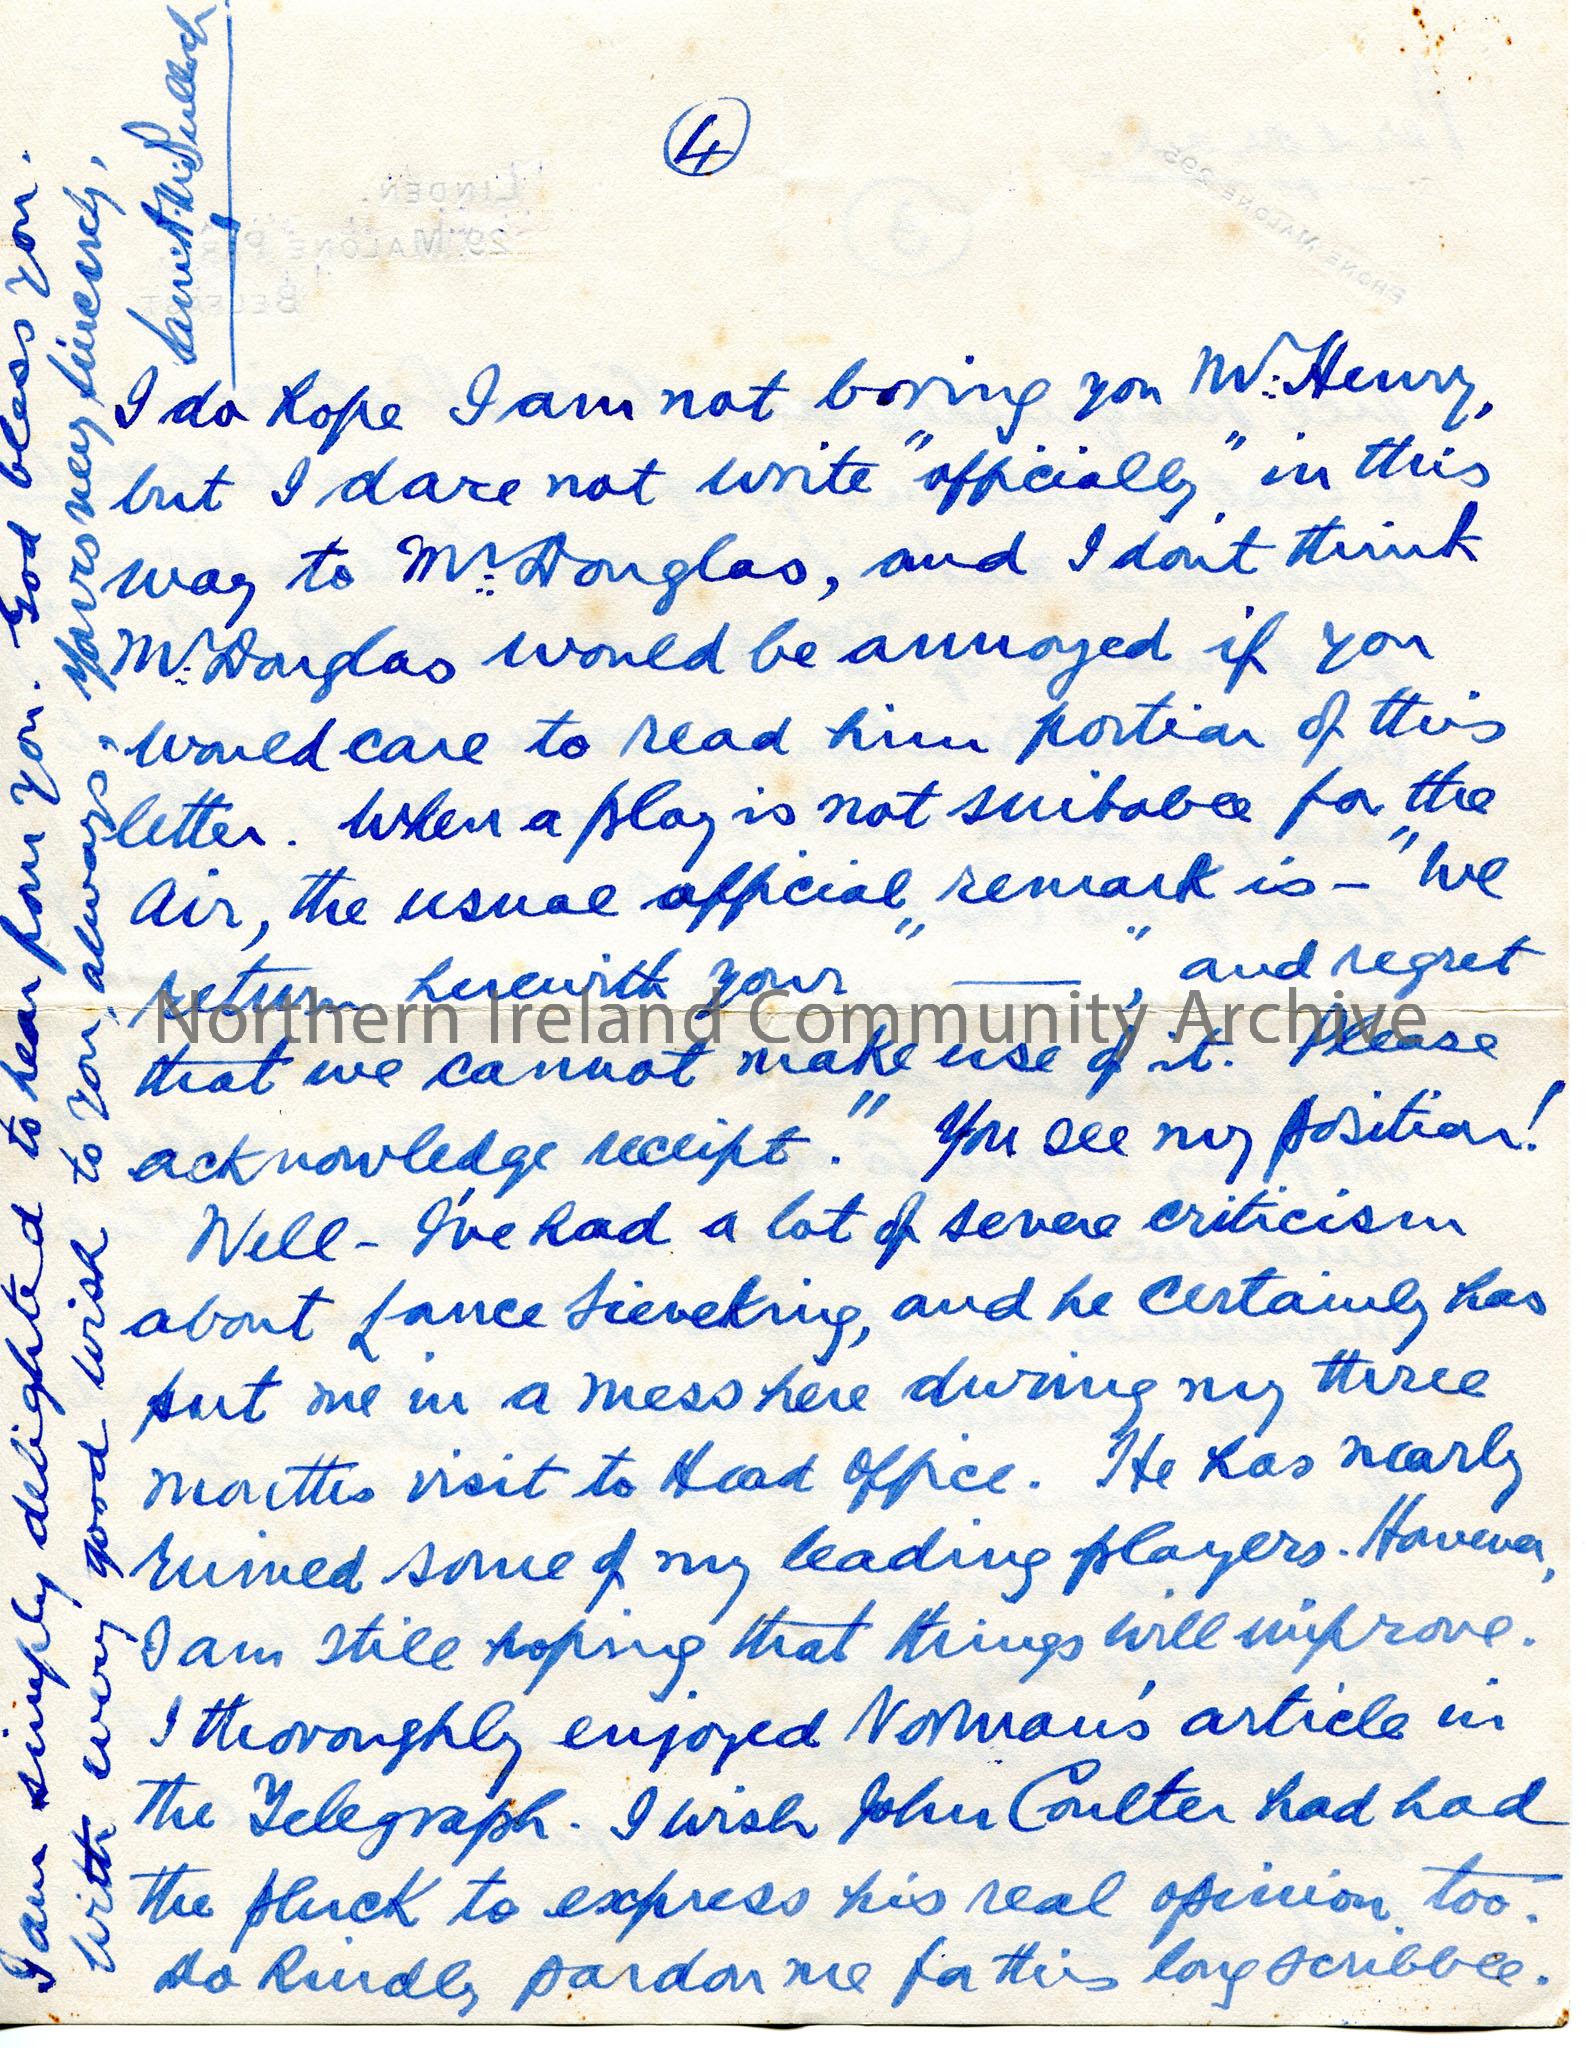 4
I do hope I am not boring you Mr. Henry,
but I dare not write "officially" in this
way to Mr. Douglas, and I don't think
Mr. Douglas would be annoyed if you
would care to read him portion of this
letter. When a play is not suitable for the
Air, the usual official remark is - "We
return herewith your " ——— ", and regret
that we cannot make use of it. Please
acknowledge receipt." You see my position!
Well - I've had a lot of severe criticism
about Lance Sieveking, and he certainly has
put me in a mess here during my three
months visit to Head Office. He has nearly
ruined some of my leading players. However,
I am still hoping that things will improve.
I thoroughly enjoyed Norman's article in
the Telegraph. I wish John Coulter had had
the pluck to express his real opinion too.
Do kindly pardon me for this long scribble.
I am simply delighted to hear from you. God bless you.
With every good wish to you, always, Yours very sincerely,
LINDEN.
29. MALONE PARK
BELFAST
PHONE MALONE 295
3
Northern Ireland Community Archive